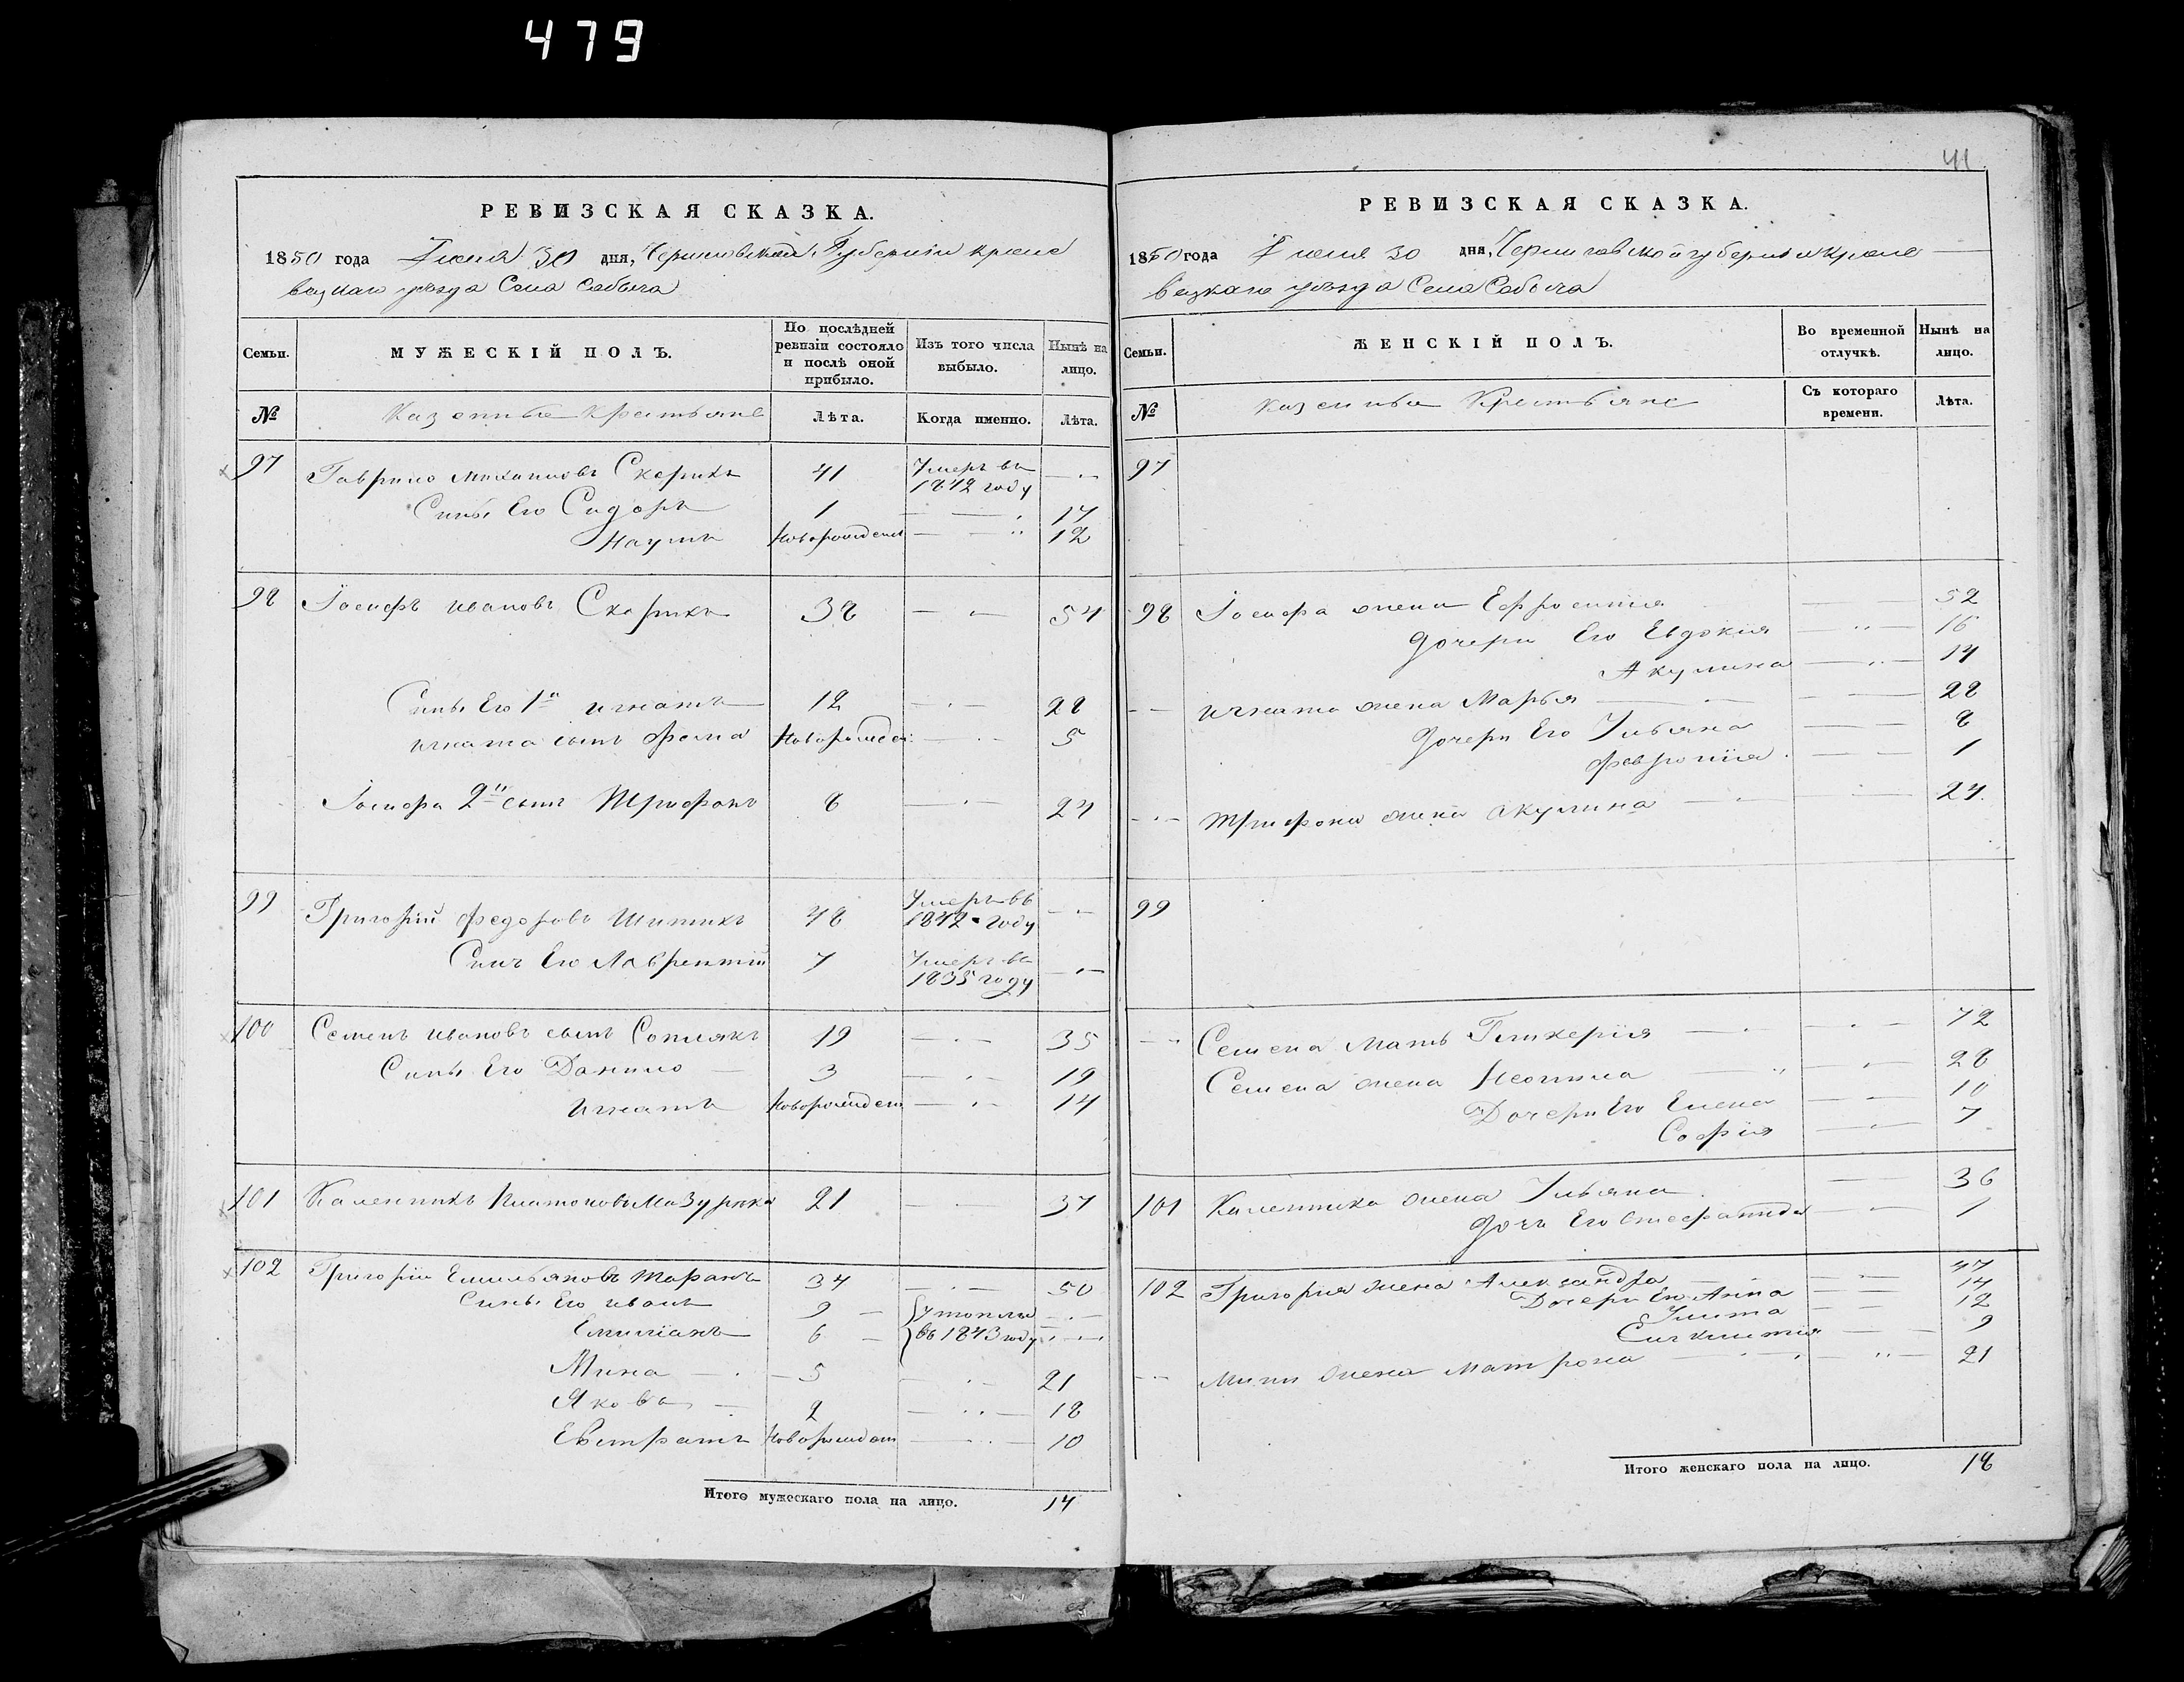 479
41
РЕВИЗСКАЯ СКАЗКА.
1850 года Іюня 30 дня, Черниговской Губерніи Кроле
вецкаго уѣзда Села Собыча
Семьи. МУЖЕСКІЙ ПОЛЪ. По послѣдней ревизіи состояло и послѣ оной прибыло. Изъ того числа выбыло. Нынѣ на лицо.
№ Казенные Крестьяне Лѣта. Когда именно. Лѣта.
97 Гаврило Михаиловъ Скорикъ 41 Умеръ въ 1842 году
Сины Его Сидоръ 1 17
Наумъ Новорожденъ 12
98 Іосифъ Ивановъ Скорикъ 38 54
Сины Его 1й Игнатъ 12 28
Игната сынъ Фома Новорожден 5
Іосифа 2й сынъ Трифонъ 8 24
99 Григорій Федоровъ Шитикъ 48 Умеръ въ 1842 году
Синъ Его Лаврентій 7 Умеръ въ 1835 году
100 Семенъ Ивановъ сынъ Сопляқъ 19 35
Сины Его Данило 3 19
Игнатъ Новорожденъ 14
101 Каленикъ Платоновъ Мазурока 21 37
102 Григорій Емильяновъ Таранъ 34 50
Сины Его Иванъ 9 Утоплы
Емиліанъ 6 въ 1843 году
Мина 5 21
Яковъ 2 18
Евстратъ Новорожден 10
Итого мужескаго пола на лицо. 14
РЕВИЗСКАЯ СКАЗКА.
1850 года Іюня 30 дня, Черниговской губерніи Кроле
вецкаго уѣзда Села Собыча
Семьи. ЖЕНСКІЙ ПОЛЪ. Во временной отлучкѣ. Нынѣ на лицо.
№ Казенные Крестьяне Съ котораго времени. Лѣта.
97
98 Іосифа жена Ефросинія 52
дочери Его Евдокія 16
Акулина 14
Игната жена Марья 28
дочери Его Ульяна 8
Февронія 1
Трифона жена Акулина 24
99
Семена Мать Гликерія 72
Семена жена Неонила 28
Дочери Его Елена 10
Софія 7
101 Каленика жена Ульяна 36
дочь Его Стефанида 1
102 Григорія жена Александра 47
Дочери Его Анна 14
Улита 12
9
Мины жена Матрона 21
Итого женскаго пола на лицо. 18